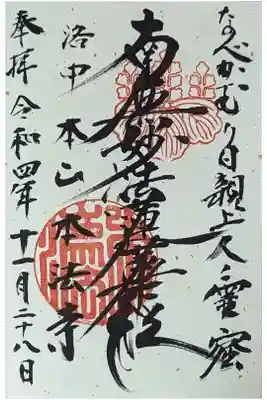 なべかむり日親上人之靈窟
南無妙法蓮華経
洛中 本山 本法寺
奉拝 令和四年十一月二十八日